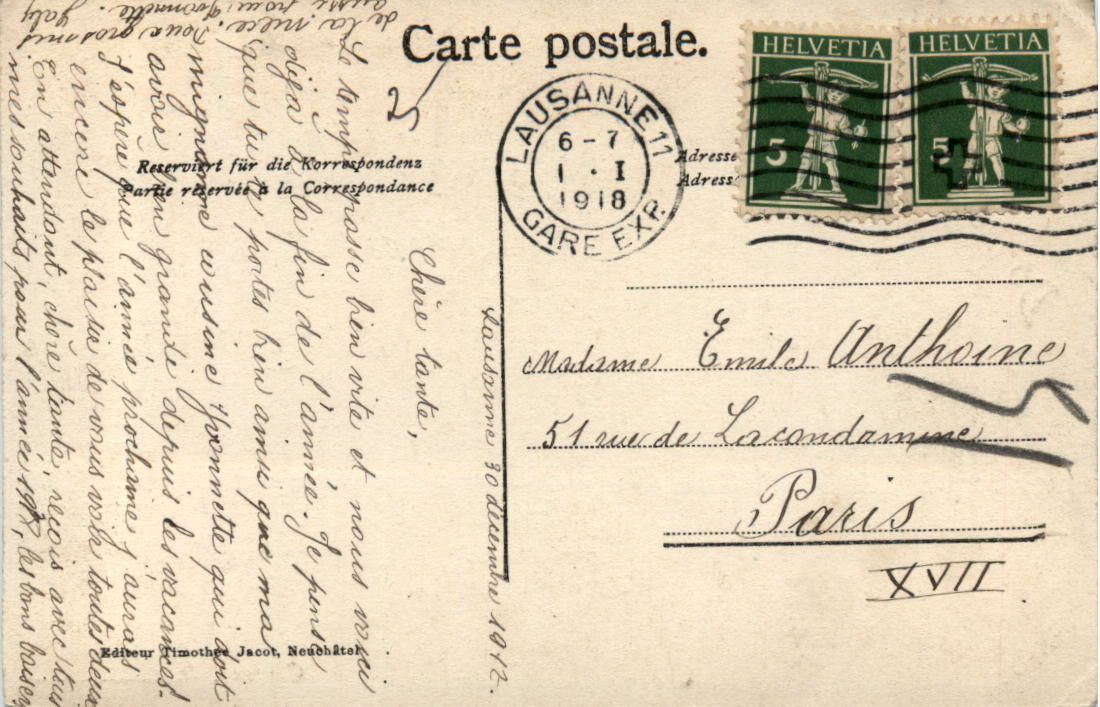 Carte postale.
HELVETIA
HELVETIA
5
5
LAUSANNE 11
6-7
1.I
1918
GARE EXP.
Reserviert für die Korrespondenz
Partie réservée à la Correspondance
Adresse
Adress
Lausanne 30 décembre 1917.
Chère tante,
Le temps passe bien vite et nous voici
déjà à la fin de l'année. Je pense
que tu te portes bien ainsi que ma
mignonne cousine Yvonnette qui doit
avoir bien grandi depuis les vacances.
J'espère que l'année prochaine j'aurais
encore le plaisir de vous voir toutes deux
En attendant, chère tante, reçois avec tous
mes souhaits pour l'année 1918, les bons baisers
de ta nièce. Deux grosses
aussi pour Yvonnette. Gaby
Madame Emile Anthoine
51 rue de Lacondamine
Paris
XVII
Editeur Timothée Jacot, Neuchâtel